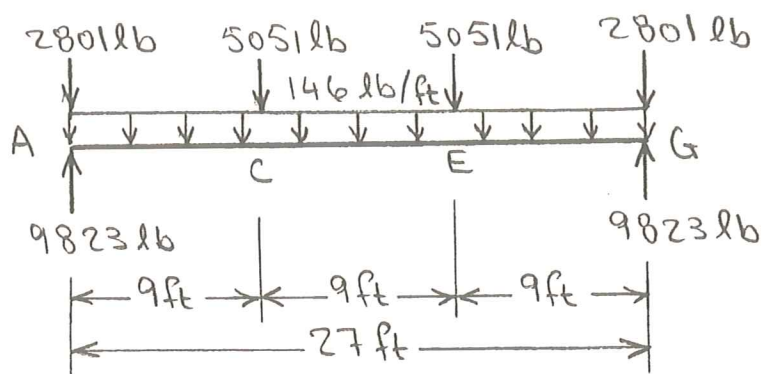 2801lb 5051lb 5051lb 2801lb
146 lb/ft
A G
C E
9823lb 9823lb
9ft 9ft 9ft
27ft